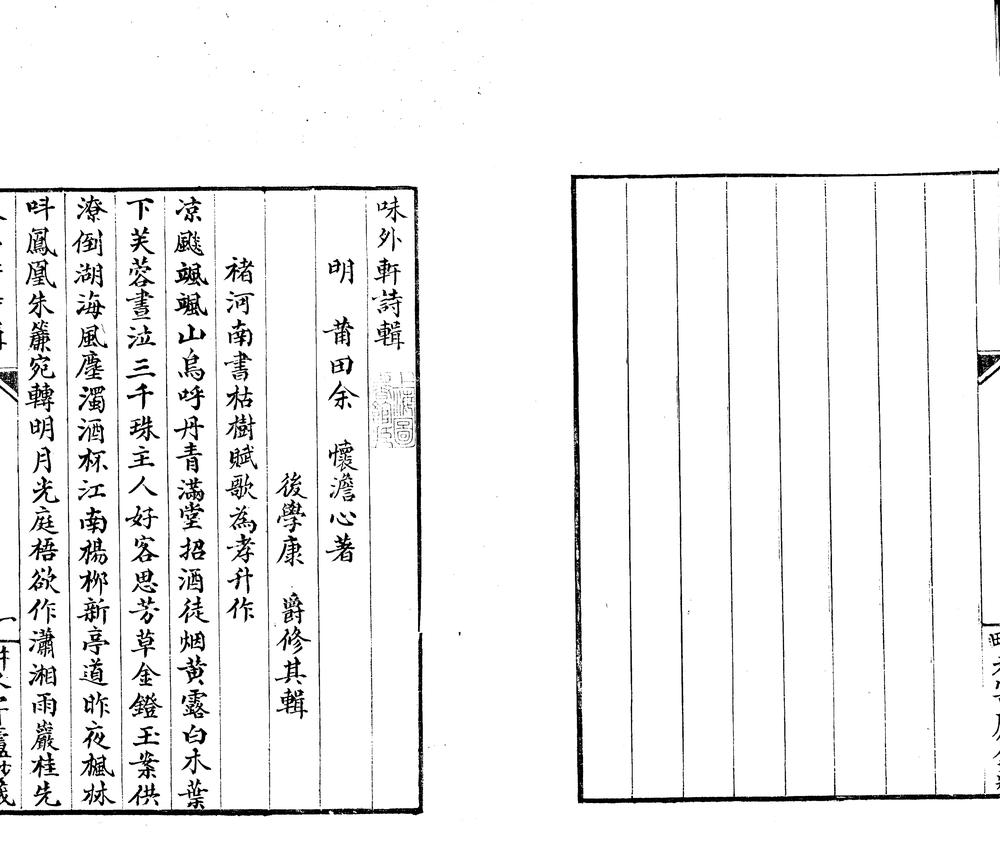 味外軒詩輯
明 莆田余 懷澹心著
後學康 爵修其輯
褚河南書枯樹賦歌為孝升作
凉飈颯颯山烏呼丹青滿堂招酒徒烟黄露白木葉
下芙蓉晝泣三千珠主人好客思芳草金鐙玉案供
潦倒湖海風塵濁酒杯江南楊栁新亭道昨夜楓林
呌鳳凰朱簾宛轉明月光庭梧欲作瀟湘雨巖桂先